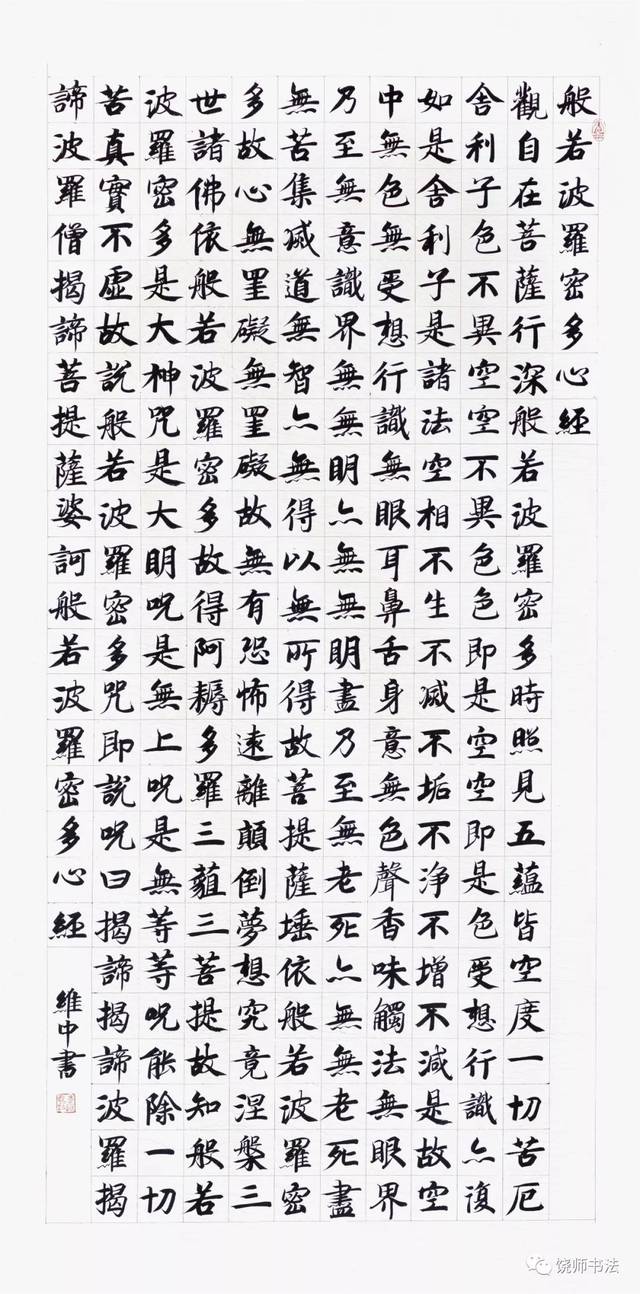 般若波羅密多心經
觀自在菩薩行深般若波羅密多時照見五蘊皆空度一切苦厄
舍利子色不異空空不異色色即是空空即是色受想行識亦復
如是舍利子是諸法空相不生不滅不垢不淨不增不減是故空
中無色無受想行識無眼耳鼻舌身意無色聲香味觸法無眼界
乃至無意識界無無明亦無無明盡乃至無老死亦無無老死盡
無苦集滅道無智亦無得以無所得故菩提薩埵依般若波羅密
多故心無罣礙無罣礙故無有恐怖遠離顛倒夢想究竟涅槃三
世諸佛依般若波羅密多故得阿耨多羅三藐三菩提故知般若
波羅密多是大神咒是大明呪是無上呪是無等等呪能除一切
苦真實不虛故說般若波羅密多咒即說呪曰揭諦揭諦波羅揭
諦波羅僧揭諦菩提薩婆訶般若波羅密多心經
維中書
饶师书法